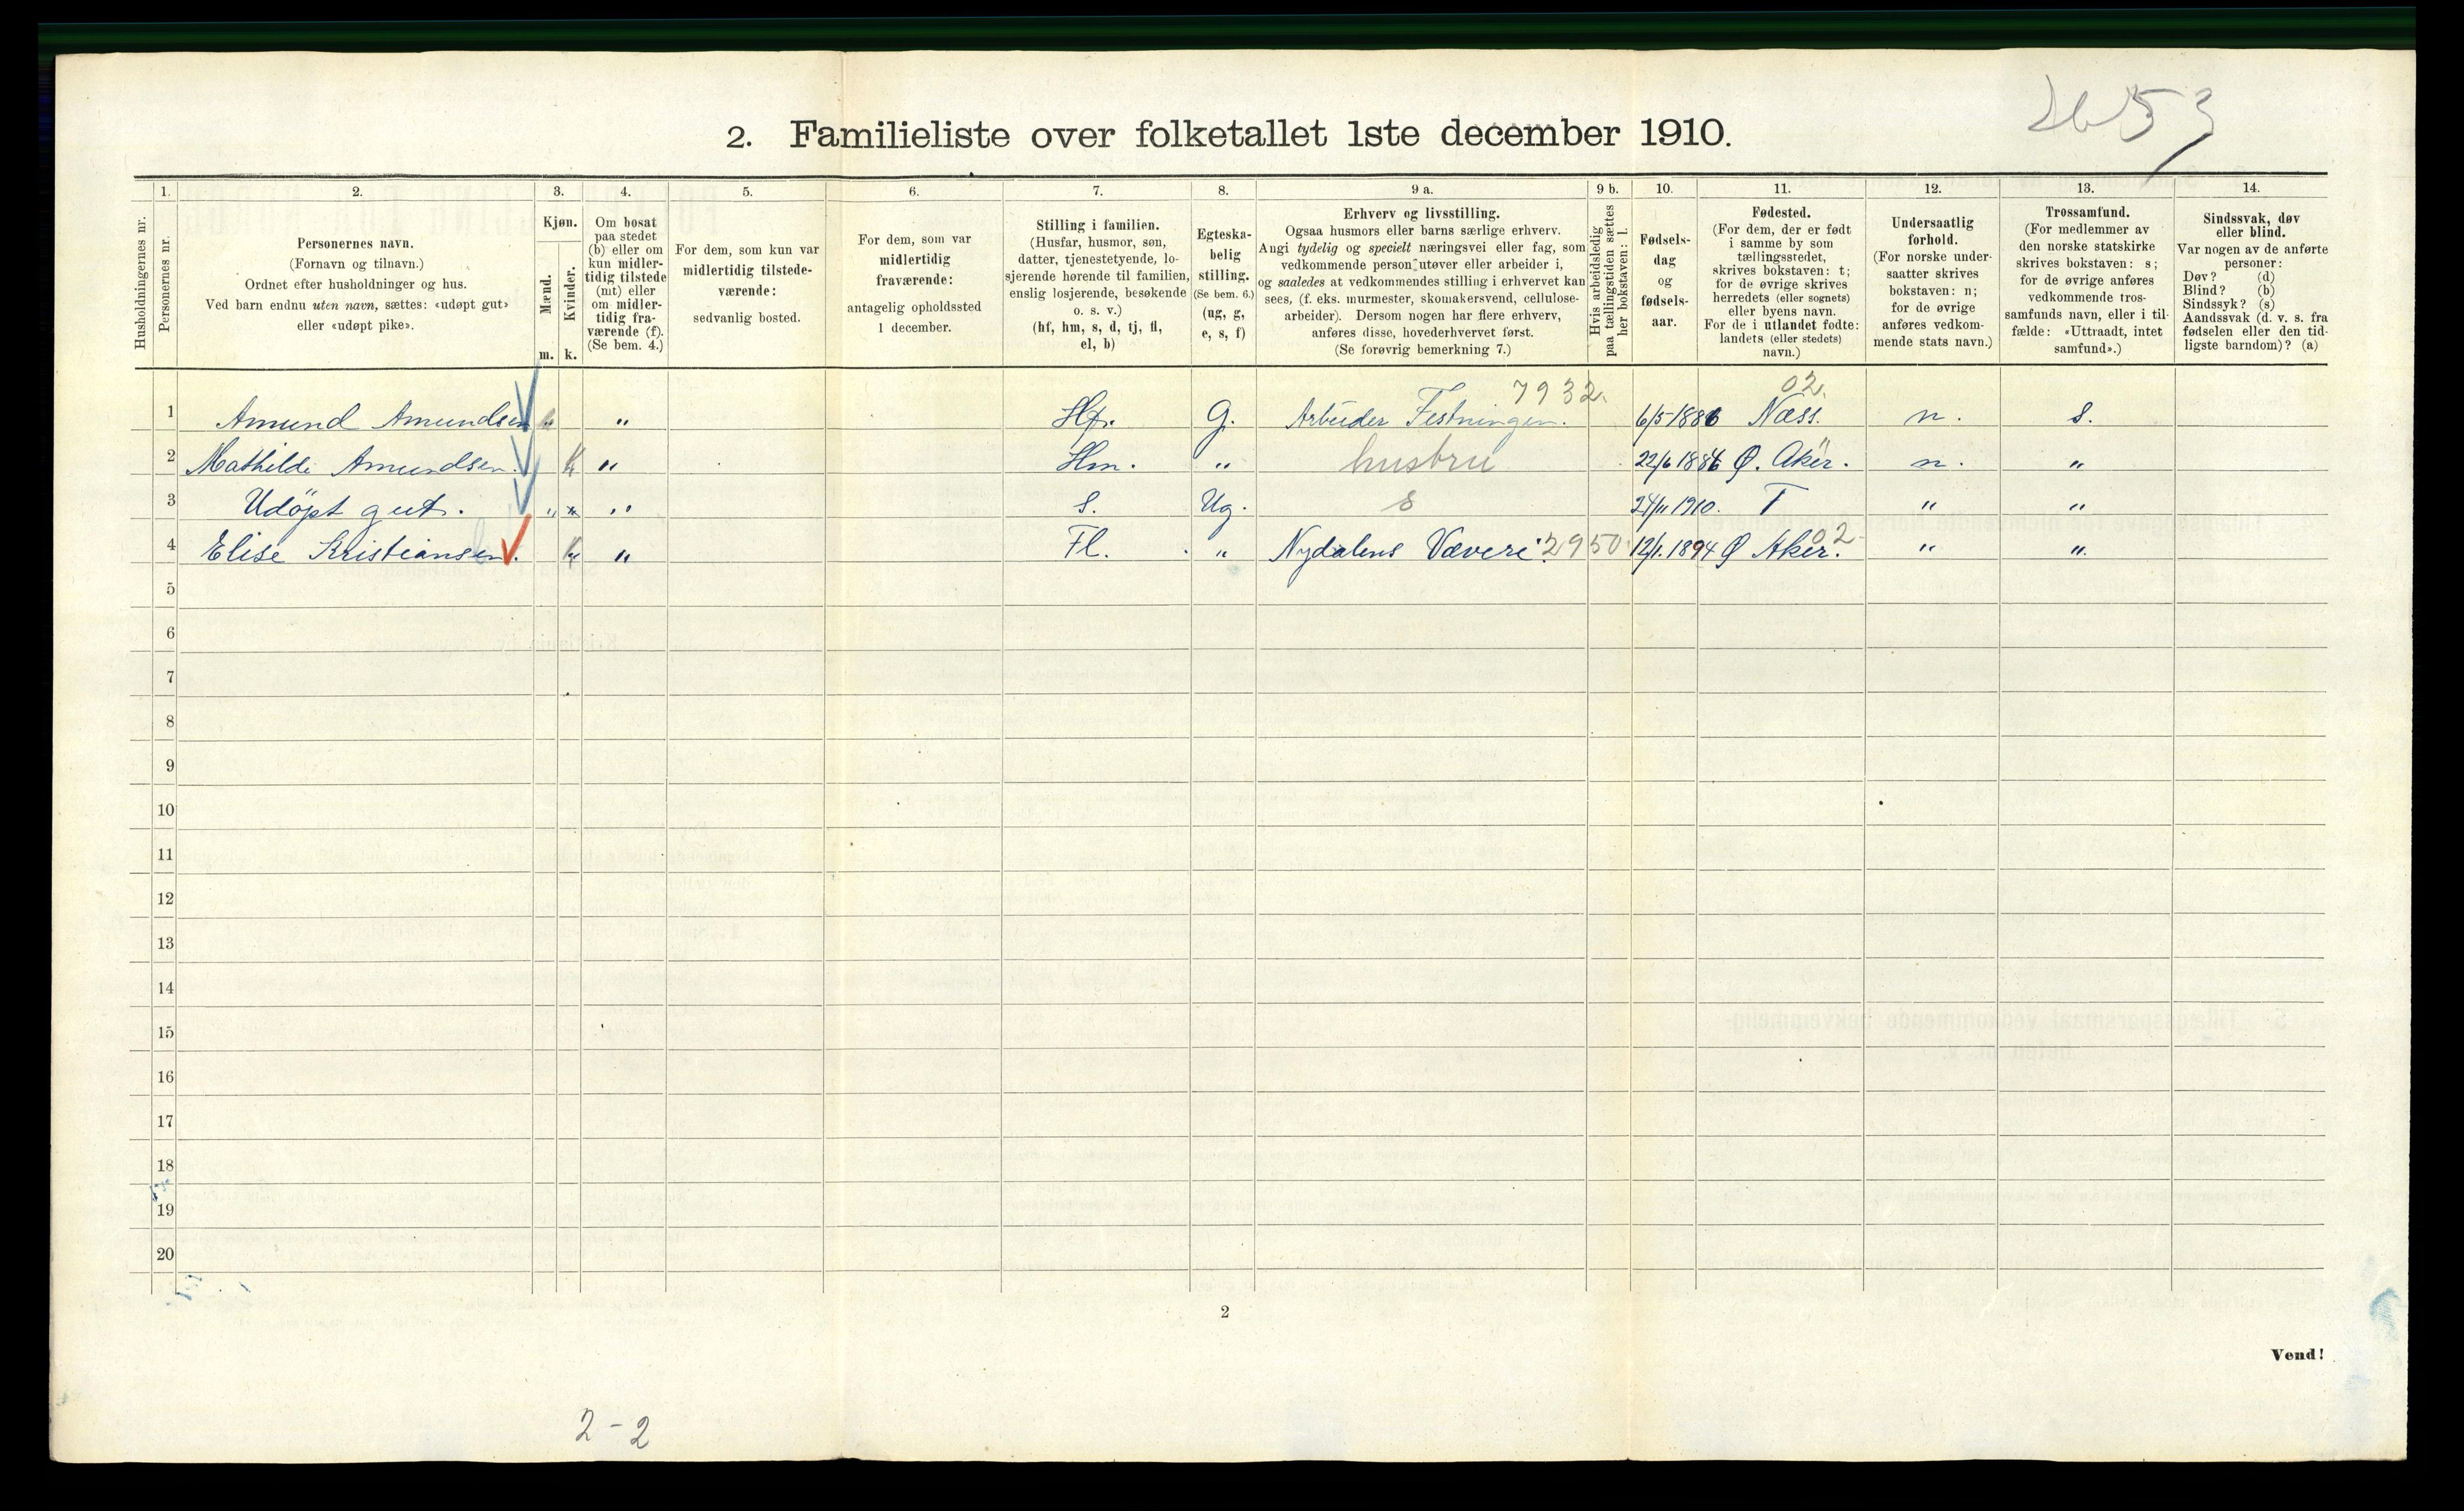 2. Familieliste over folketallet 1ste december 1910.
Husholdningernes nr.
1. Personernes nr.
2. Personernes navn.
(Fornavn og tilnavn.)
Ordnet efter husholdninger og hus.
Ved barn endnu uten navn, sættes: «udøpt gut»
eller «udøpt pike».
3. Kjøn.
Mænd. m.
Kvinder. k.
4. Om bosat
paa stedet
(b) eller om
kun midler-
tidig tilstede
(mt) eller
om midler-
tidig fra-
værende (f).
(Se bem. 4.)
5. For dem, som kun var
midlertidig tilstede-
værende:
sedvanlig bosted.
6. For dem, som var
midlertidig
fraværende:
antagelig opholdssted
1 december.
7. Stilling i familien.
(Husfar, husmor, søn,
datter, tjenestetyende, lo-
sjerende hørende til familien,
enslig losjerende, besøkende
o. s. v.)
(hf, hm, s, d, tj, fl,
el, b)
8. Egteska-
belig
stilling.
(Se bem. 6.)
(ug, g,
e, s, f)
9 a. Erhverv og livsstilling.
Ogsaa husmors eller barns særlige erhverv.
Angi tydelig og specielt næringsvei eller fag, som
vedkommende person utøver eller arbeider i,
og saaledes at vedkommendes stilling i erhvervet kan
sees, (f. eks. murmester, skomakersvend, cellulose-
arbeider). Dersom nogen har flere erhverv,
anføres disse, hovederhvervet først.
(Se forøvrig bemerkning 7.)
9 b. Hvis arbeidsledig
paa tællingstiden sættes
her bokstaven: l.
10. Fødsels-
dag
og
fødsels-
aar.
11. Fødested.
(For dem, der er født
i samme by som
tællingsstedet,
skrives bokstaven: t;
for de øvrige skrives
herredets (eller sognets)
eller byens navn.
For de i utlandet fødte:
landets (eller stedets)
navn.)
12. Undersaatlig
forhold.
(For norske under-
saatter skrives
bokstaven: n;
for de øvrige
anføres vedkom-
mende stats navn.)
13. Trossamfund.
(For medlemmer av
den norske statskirke
skrives bokstaven: s;
for de øvrige anføres
vedkommende tros-
samfunds navn, eller i til-
fælde: «Uttraadt, intet
samfund».)
14. Sindssvak, døv
eller blind.
Var nogen av de anførte
personer:
Døv? (d)
Blind? (b)
Sindssyk? (s)
Aandssvak (d. v. s. fra
fødselen eller den tid-
ligste barndom)? (a)
7932. 02.
1 Amund Amundsen " Hf. G. Arbeider Festningen. 6/5 1886 Næss. n. s.
2 Mathilde Amundsen. k " Hm. " hustru 22/6 1886 Ø. Aker. n. "
3 Udöpt gut. " " S. Ug. s 24/11 1910. T " "
4 Elise Kristiansen. k " Fl. " Nydalens Væveri. 2950 12/1. 1894 Ø Aker. 02 " "
5
6
7
8
9
10
11
12
13
14
15
16
17
18
19
20
2
Vend!
2-2